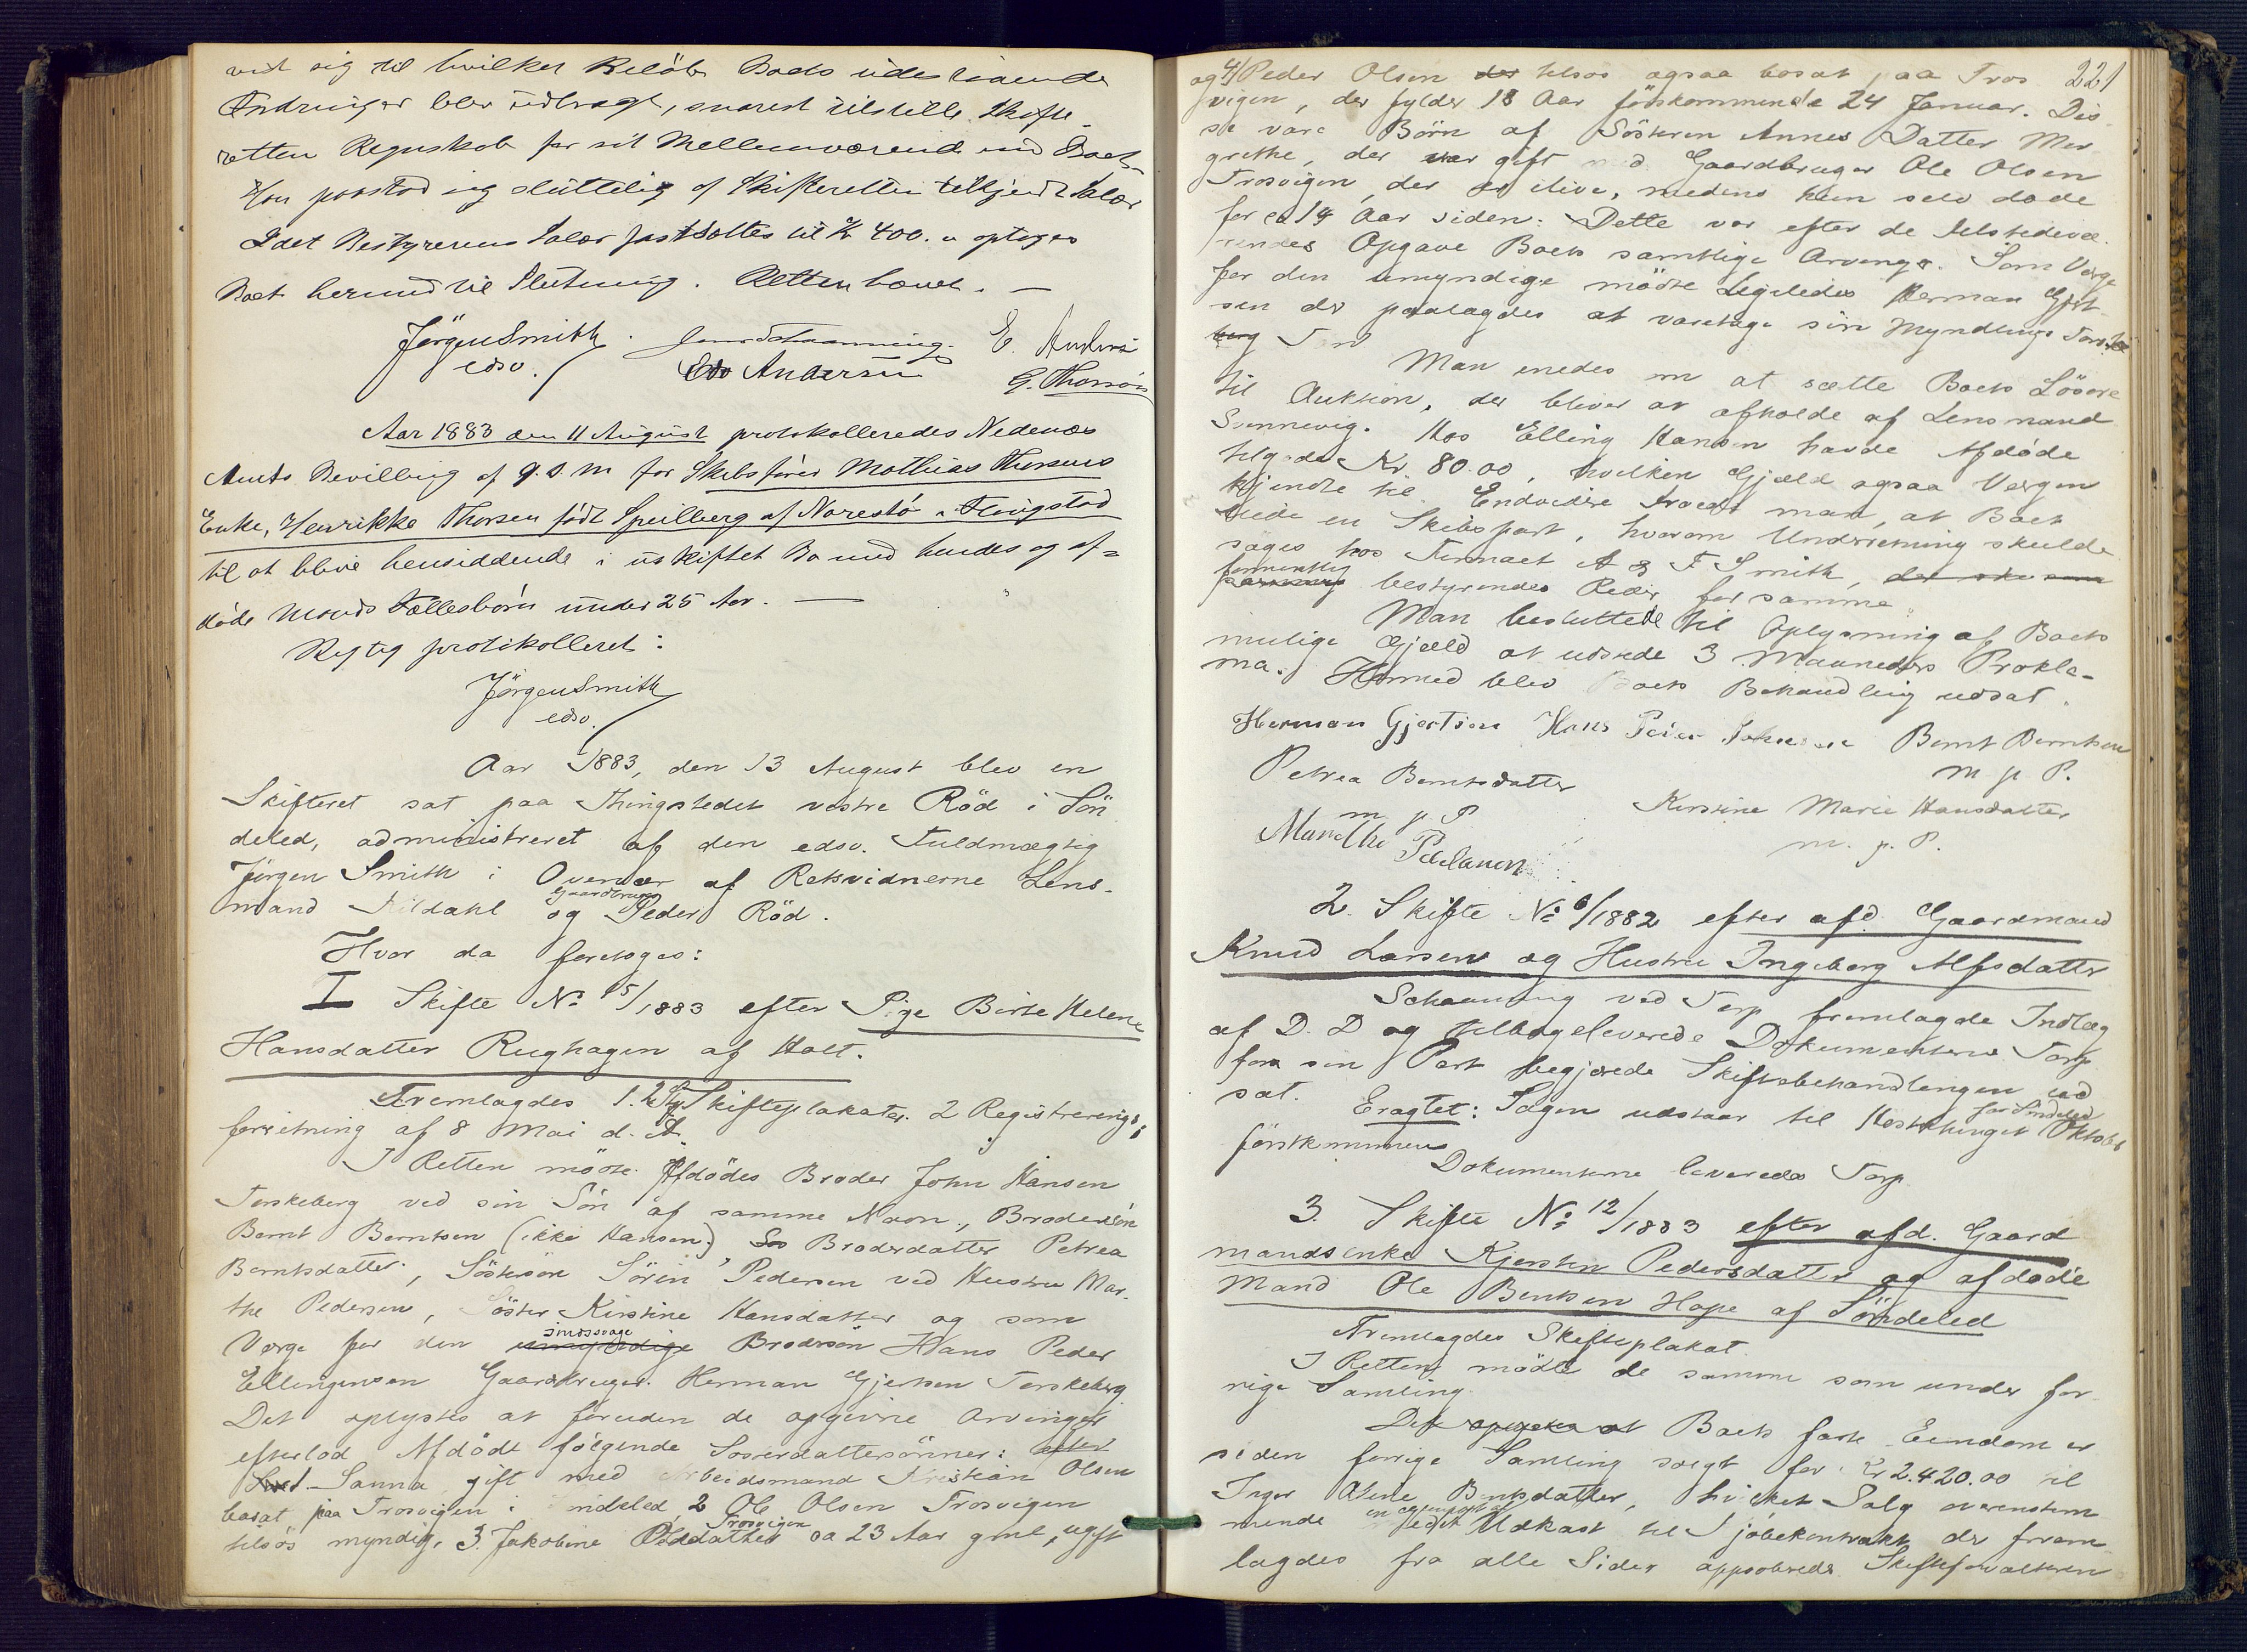 ved sig til hvilken Beløb Boets udestaaende
Fordringer blev udbragt, snarest tilstille Skifte-
retten Regnskab for sit Mellemværende med Boet.
Han paastod sig sluttelig af Skifteretten tilkjendt Salær
Idet Bestyrerens Salær fastsattes til Kr 400. " optoges
Boet hermed til Slutning. Retten hævet. —
Jörgen Smith. Jens Schanning. E. Anders
edsv. Edv Andersen G. Thorsön
Aar 1883 den 11 August protokolleredes Nedenæs
Amts Bevilling af 9. d. M for Skibsfører Mathias Thorsens
Enke, Henrikke Thorsen født Speilberg af Narestø i Flosta
til at blive hensiddende i uskiftet Bo med hendes og af=
døde Mands Fællesbørn under 25 Aar. —
Rigtig protokolleret:
Jörgen Smith
edsv.
Aar 1883, den 13 August blev en
Skifteret sat paa Thingstedet vestre Röd i Sön
deled, administreret af den edsv. Fuldmægtig
Jörgen Smith i Overvær af Retsvidnerne Lens-
mand Kildahl og Gaardbruger Peder Röd.
Hvor da foretoges:
I Skifte No 15/1883 efter Pige Birte Helene
Hansdatter Rughagen af Holt.
Fremlagdes 1. 2 Skifteplakater. 2 Registrerings
forretning af 8 Mai d. A.
I Retten mødte Afdödes Broder John Hansen
Torskeberg ved sin Sön af samme Navn, Brodersön
Bernt Berntsen (ikke Hansen), Broderdatter Petrea
Berntsdatter, Søstersøn Sörin Pedersen ved Hustru Mar-
the Pedersen, Söster Kirstine Hansdatter og som
Værge for den umyndige sindssvage Brodersön Hans Peder
Ellingensen Gaardbruger Herman Gjertsen Torskeberg
Det oplystes at foruden de opgivne Arvinger
efterlod Afdöde fölgende Sösterdattersönner: efter
Sanna, gift med Arbeidsmand Kristian Olsen
bosat paa Trosvigen i Söndeled 2 Ole Olsen Trosvigen
tilsös myndig, 3. Jakobine Olsdatter Trosvigen ca 23 Aar gml, ugift
221
og 4/ Peder Olsen tilsøs ogsaa bosat paa Tros
vigen, der fylder 18 Aar förskommende 24 Januar. Dis
se vare Börn af Sösteren Annes Datter Mar
grethe, der var gift med Gaardbruger Ole Olsen
Trosvigen, der er ilive, medens hun selv döde
for ca 14 Aar siden. Dette var efter de tilstedevæ-
rendes Opgave Boets samtlige Arvinger. Som Værge
for den umyndige mödte ligeledes Herman Gjert
sen der paalagdes at varetage sin Myndlings Tarv
Man enedes om at sætte Boets Lösöre
til Auktion, der bliver at afholde af Lensmand
Svennevig. Hos Elling Hansen havde Afdöde
tilgode Kr. 80.00, hvilken Gjæld ogsaa Værgen
kjendte til. Endvidere troede man, at Boet
eiede en Skibspart, hvorom Underretning skulde
søges hos Firmaet A & F Smith,
formentlig bestyrendes Reder for samme.
Man besluttede til Oplysning af Boets
mulige Gjæld at udstede 3 Maaneders Prokla-
ma. Hermed blev Boets Behandling udsat.
Herman Gjertsen Hans Peder Johnsen Bernt Berntsen
m p P.
Petrea Berntsdatter
m p P
Kirstine Marie Hansdatter
m. p. P.
Marethe Pedersen
2. Skifte No 6/1882 efter afd. Gaardmand
Knud Larsen og Hustru Ingeborg Alfsdatter
Schanning ved Torp fremlagde Indlæg
af D. D og tilbageleverede Dokumenterne. Torp
for sin Part begjærede Skiftebehandlingen ud
sat. Eragtet: Sagen udstaar til Høstthinget for Söndeled Oktober
förstkommende
Dokumenterne leveredes Torp
3. Skifte No 12/1883 efter afd. Gaard
mandsenke Kjersten Pedersdatter og afdøde
Mand Ole Bentsen Hope af Söndeled
Fremlagdes Skifteplakat
I Retten mødte de samme som under for-
rige Samling.
Det oplystes at Boets faste Eiendom er
siden forrige Samling solgt for Kr 2.420.00 til
Inger Olene Bentsdatter, hvilket Salg overenstem
mende Udkast til Kjöbekontrakt der frem
lagdes fra alle Sider approberedes Skifteforvalteren